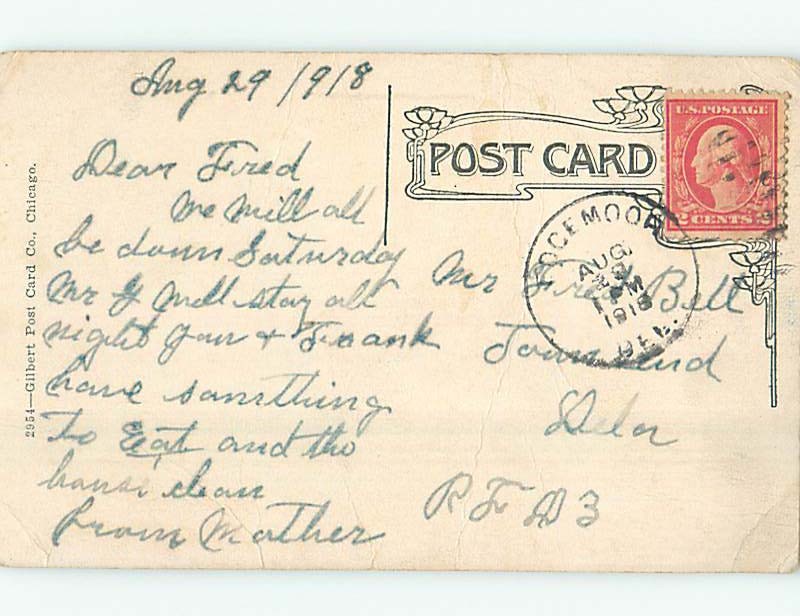 Aug 29 1918
Dear Fred
We will all
be down Saturday
Mr G will stay all
night you + Frank
have somthing
To Eat and the
house clean
From Mother
2954—Gilbert Post Card Co., Chicago.
POST CARD
U.S. POSTAGE
2 CENTS 2
EDGEMOOR
AUG
1918
DEL.
Mr Fred Bell
Townsend
Dela
R F D 3